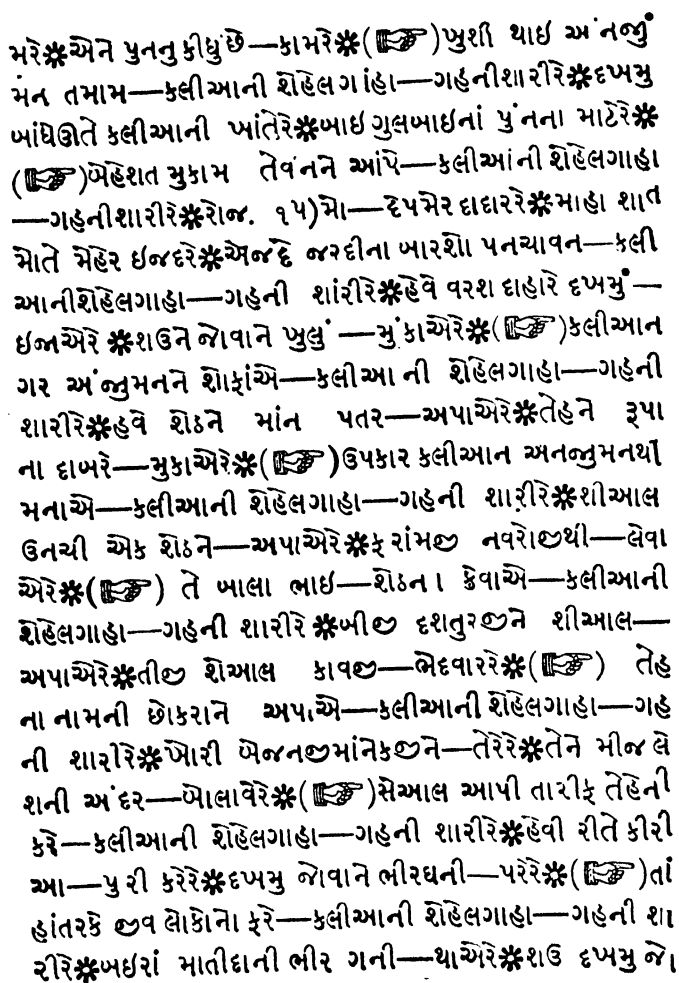 મરે✽એને પુનનુ કીધુંછે—કામરે✽(☞)ખુશી થાઇ અંનજું
મન તમામ—કલીઆની શેહેલગાંહા—ગહનીશારીરે✽દખમુ
બાંધેઊતે કલીઆની ખાંતેરે✽બાઇ ગુલબાઇનાં પુંનના માટેરે✽
(☞)બેહેશત મુકામ તેવંનને આંપે—કલીઆંની શેહેલગાહા
—ગહનીશારીરે✽રોજ. ૧૫)મો—દેપમેર દાદારરે✽માહા શાત
મોતે મેહેર ઇજદરે✽એજદે જરદીના બારશો પનચાવન—કલી
આનીશેહેલગાહા—ગહની શાંરીરે✽હેવે વરશ દાહારે દખમું—
ઇજાએરે ✽શઉને જોવાને ખુલું —મુંકાએરે✽(☞)કલીઆન
ગર અંજુમનને શોફાંએ—કલીઆ ની શેહેલગાહા—ગહની
શારીરે✽હવે શેઠને માંન પતર—અપાએરે✽તેહને રૂપા
ના દાબરે—મુકાએરે✽(☞)ઉપકાર કલીઆન અનજુમનથી
મનાએ—કલીઆની શેહેલગાહા—ગહની શારીરે✽શીઆલ
ઉનચી એક શેઠને—અપાએરે✽ફરાંમજી નવરોજીથી—લેવા
એરે✽(☞) તે બાલા ભાઇ—શેઠના કેવાએ—કલીઆની
શેહેલગાહા—ગહની શારીરે ✽બીજી દશતુરજીને શીઆલ—
અપાએરે✽તીજી શેઆલ કાવજી—ભેદવારરે✽(☞) તેહ
ના નામની છોકરાને અપાએ—કલીઆની શેહેલગાહા—ગહ
ની શારીરે✽ખોરી બેજનજીમાંનેકજીને—તેરેરે✽તેને મીજ લે
શની અંદર—બોલાવેરે✽(☞)સેઆલ આપી તારીફ તેહેની
કરે—કલીઆની શેહેલગાહા—ગહની શારીરે✽હેવી રીતે કીરી
આ—પુરી કરેરે✽દખમુ જોવાને ભીરઘની—પરેરે✽(☞)તાં
હાંતરકે જીવ લોકોના ફરે—કલીઆની શેહેલગાહા—ગહની શા
રીરે✽બઇરાં માતીદાની ભીર ગની—થાએરે✽શઉ દખમુ જો